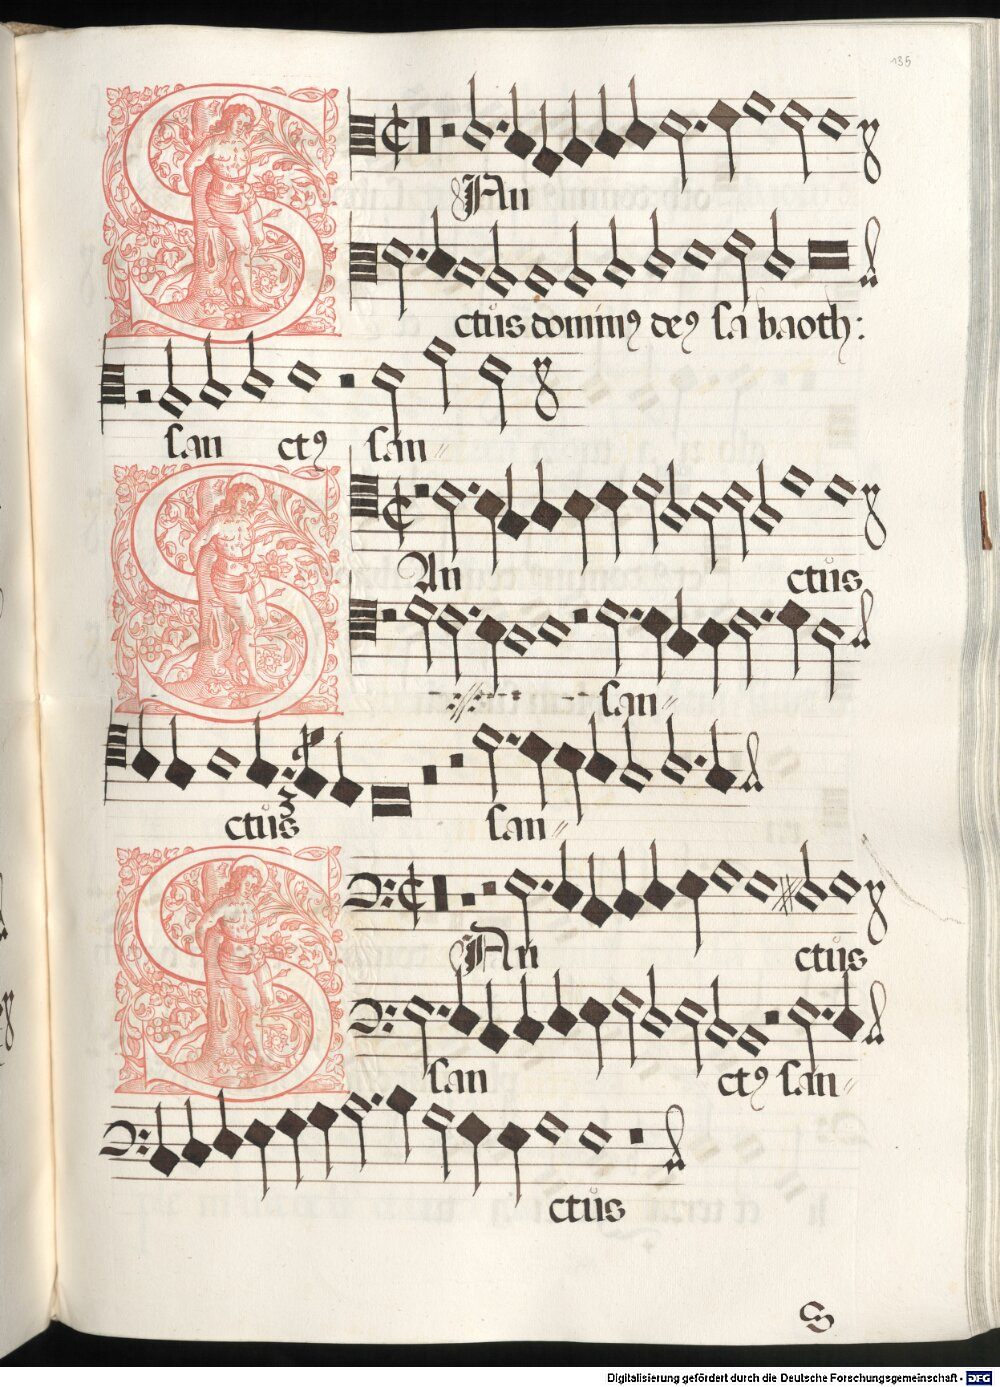 135
SAn
ctus dominꝰ deꝰ sa baoth:
san ctꝰ san〃
SAn ctus
san〃
ctus san〃
SAn ctus
san ctꝰ san〃
ctus
S
Digitalisierung gefördert durch die Deutsche Forschungsgemeinschaft - DFG